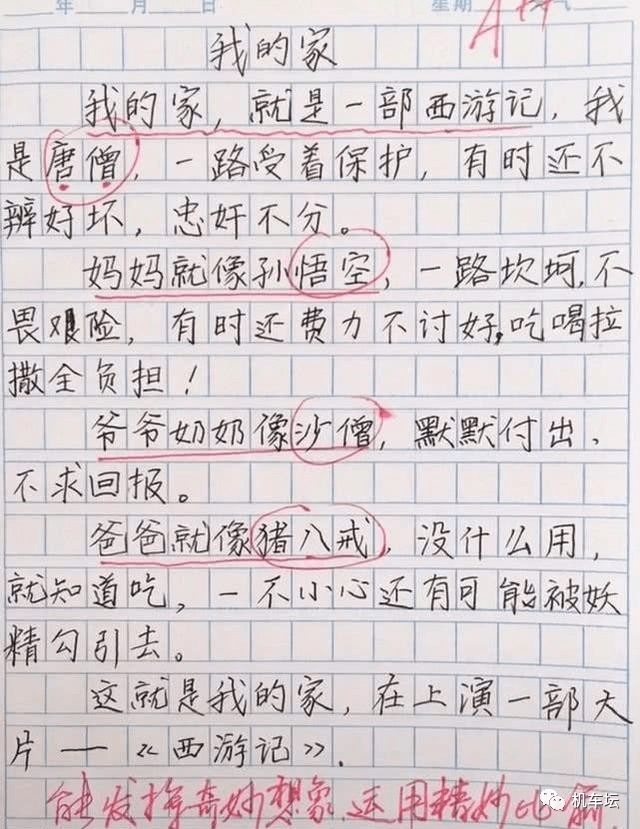 年 月 日 星期 气
我的家
我的家，就是一部西游记，我
是唐僧，一路受着保护，有时还不
辨好坏，忠奸不分。
妈妈就像孙悟空，一路坎坷，不
畏艰险，有时还费力不讨好，吃喝拉
撒全负担！
爷爷奶奶像沙僧，默默付出、
不求回报。
爸爸就像猪八戒，没什么用，
就知道吃，一不小心还有可能被妖
精勾引去。
这就是我的家，在上演一部大
片——《西游记》．
能发挥奇妙想象，运用精妙比喻
机车坛